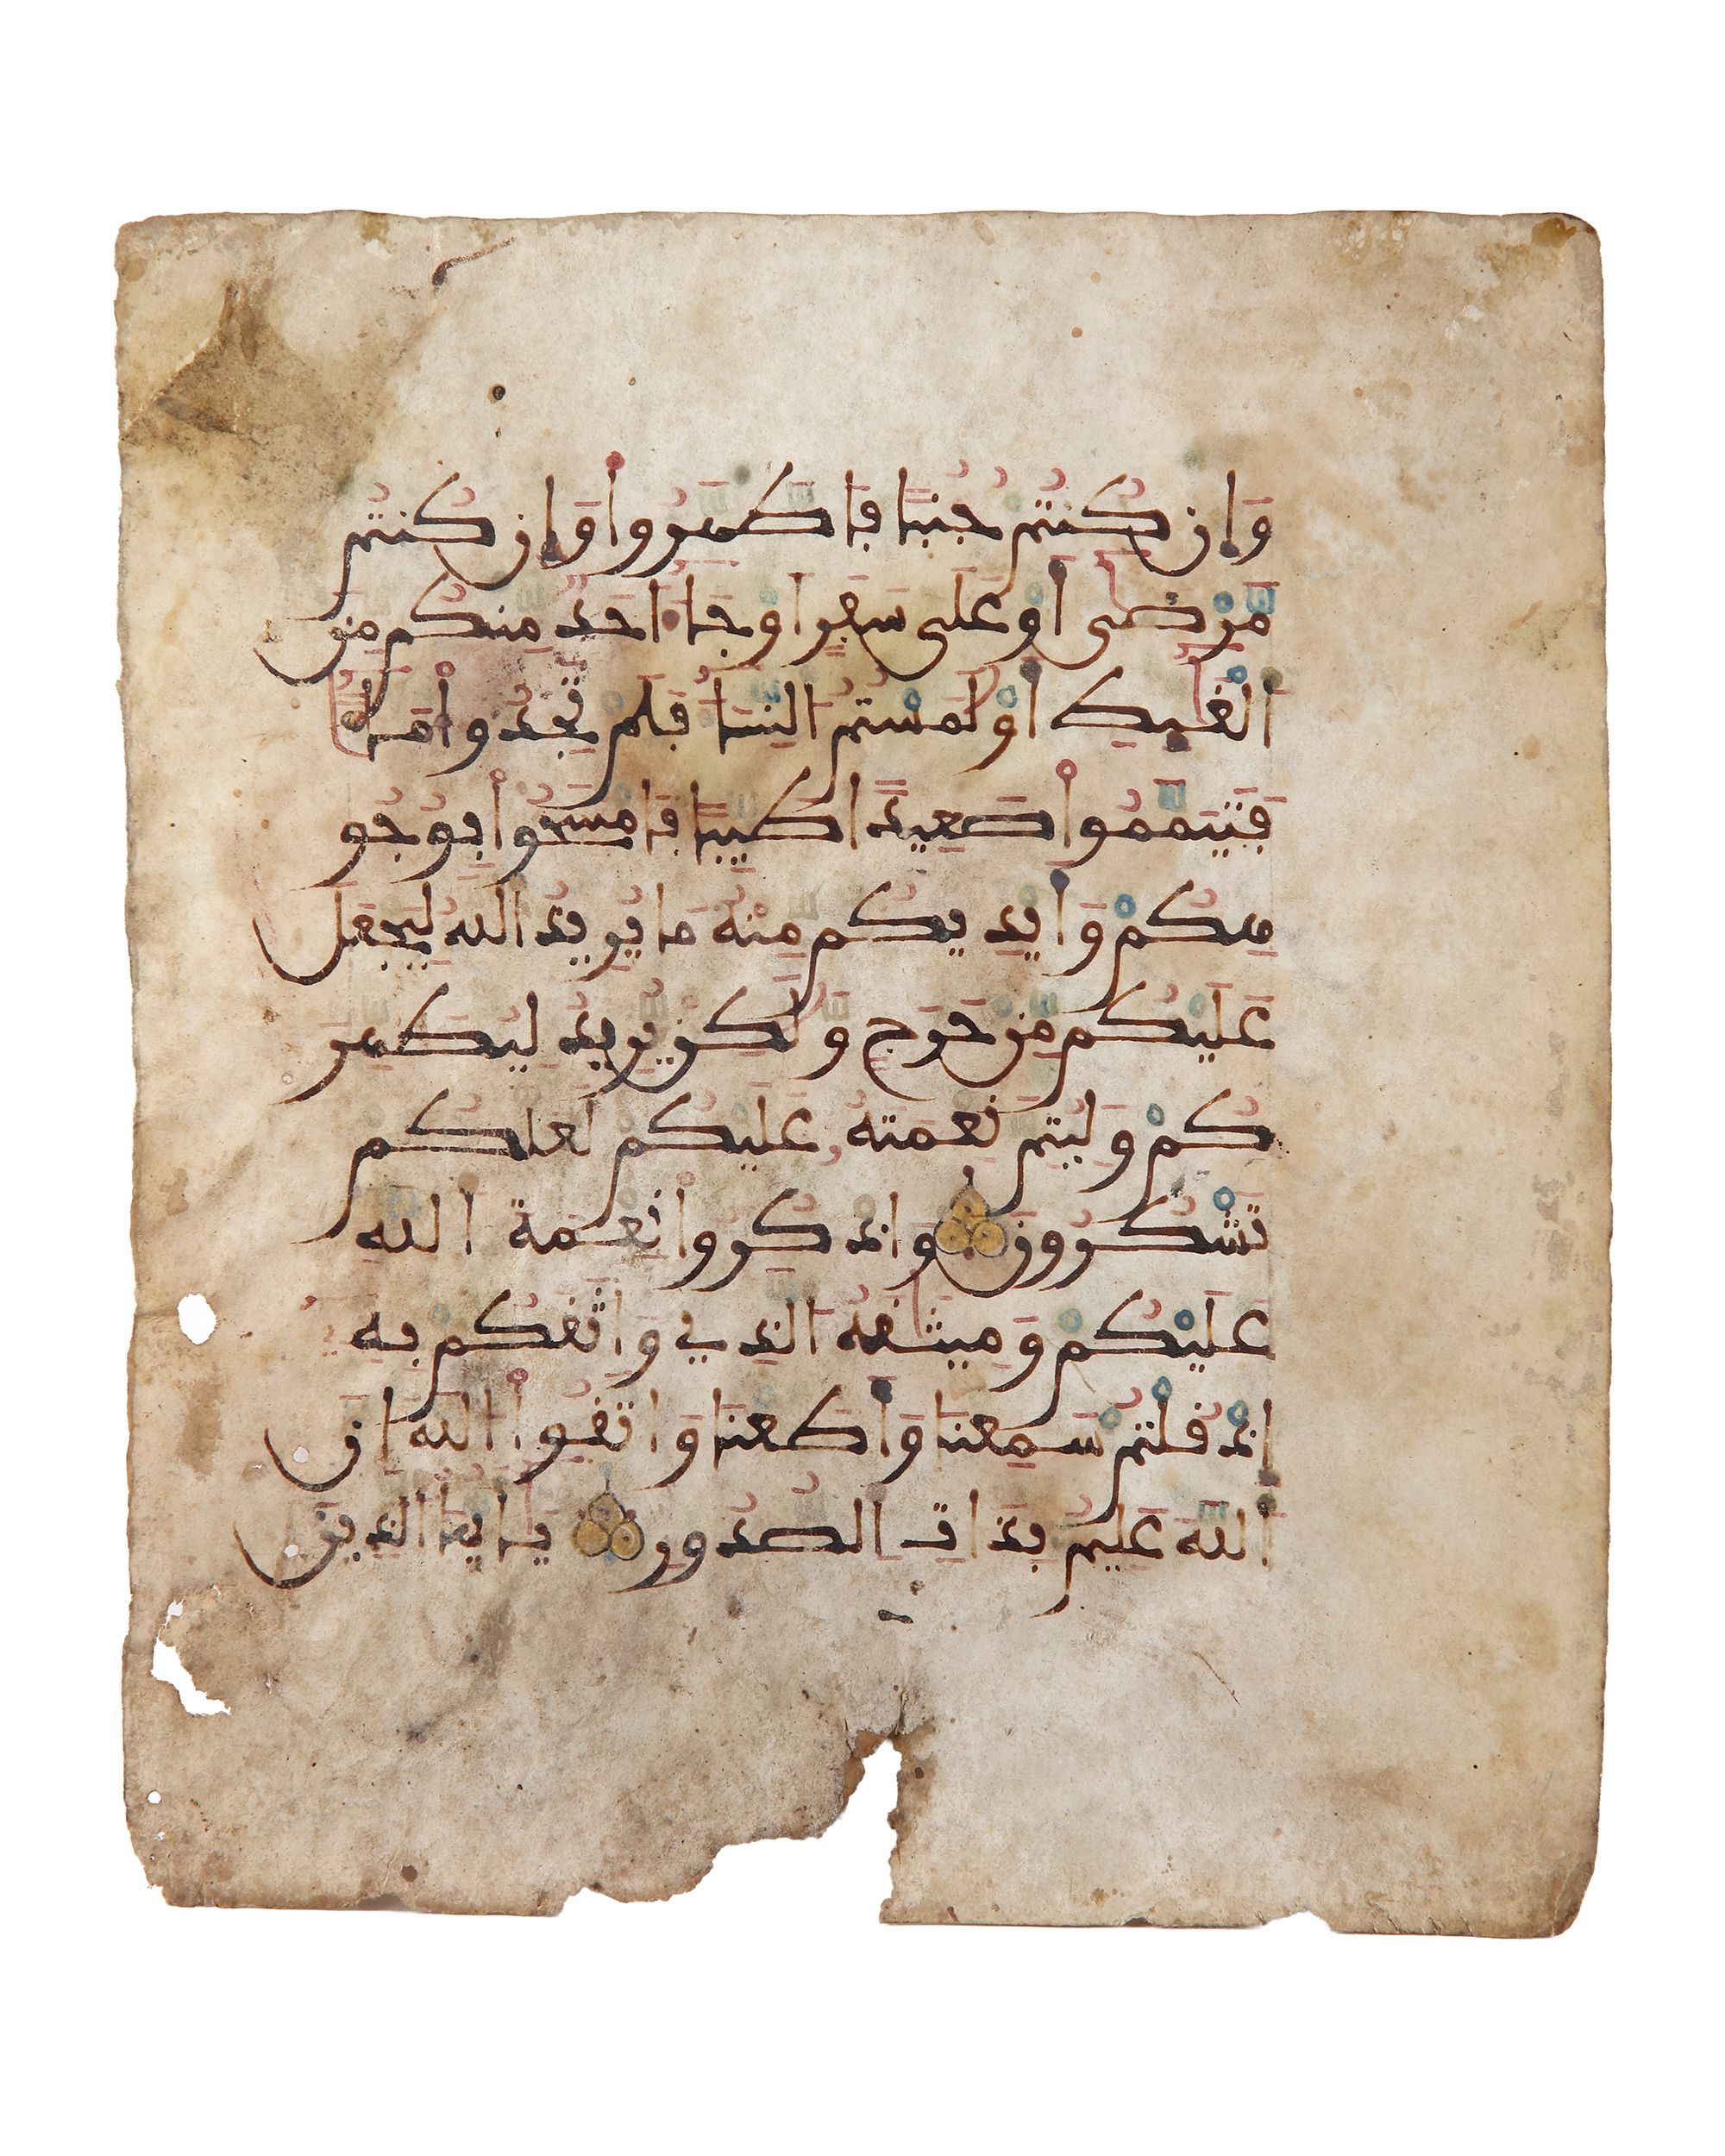 وَإِن كُنتُمْ جُنُبًا فَاطَّهَّرُوا وَإِن كُنتُم
مَّرْضَىٰ أَوْ عَلَىٰ سَفَرٍ أَوْ جَاءَ احَدٌ مِّنكُم مِّنَ
الْغَايِطِ أَوْ لَٰمَسْتُمُ النِّسَاءَ فَلَمْ تَجِدُوا مَاءً
فَتَيَمَّمُوا صَعِيدًا طَيِّبًا فَامْسَحُوا بِوُجُو
هِكُمْ وَأَيْدِيكُم مِّنْهُ مَا يُرِيدُ اللهُ لِيَجْعَلَ
عَلَيْكُم مِّنْ حَرَجٍ وَلَٰكِن يُرِيدُ لِيُطَهِّرَ
كُمْ وَلِيُتِمَّ نِعْمَتَهُ عَلَيْكُمْ لَعَلَّكُمْ
تَشْكُرُونَ وَاذْكُرُوا نِعْمَةَ اللهِ
عَلَيْكُمْ وَمِيثَٰقَهُ الَّذِي وَاثَقَكُم بِهِ
إِذْ قُلْتُمْ سَمِعْنَا وَأَطَعْنَا وَاتَّقُوا اللهَ إِنَّ
اللهَ عَلِيمٌ بِذَاتِ الصُّدُورِ يَا أَيُّهَا الَّذِينَ